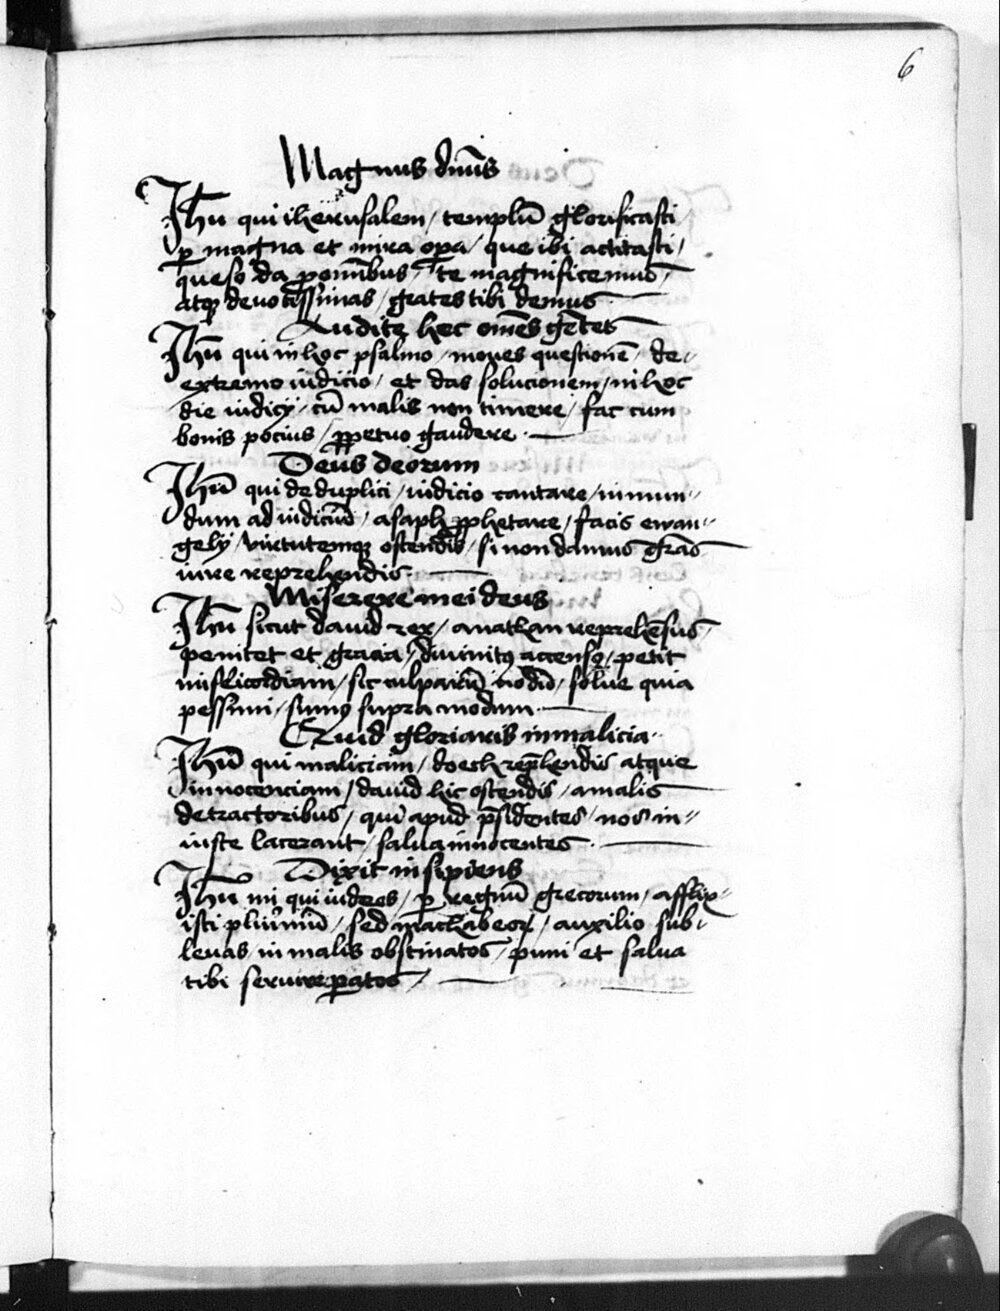 6
Magnus dn̄s
Jhū qui iherusalem / templū glorificasti
ꝑ magna et mira oꝑa / que ibi actitasti /
queso da / te magnificemus /
atqꝫ deuotissimas / grates tibi demus
Audite hec om̄es gētes
Jhū qui in hoc psalmo / moues questionē / de
extremo iudicio / et das solucionem / in hoc
die iudicij / cū malis non timere / fac cum
bonis pocius / ꝑpetuo gaudere
Deus deorum
Jhū qui de duplici / iudicio cantare / in mun
dum ad iudiciū / asaph ꝓphetare / facis ewan
gelij / virtutemqꝫ ostendis / si non damus grās
iure reprehendis
Miserere mei deus
Jhū sicut dauid rex / a nathan reprehēsus
penitet et gracia / diuinitꝰ accensꝰ / petit
misericordiam / sic culparū / solue quia
pessimi / sumꝰ supra modum
Quid gloriaris in malicia
Jhū qui maliciam / doech rep̄hendis atque
innocenciam / dauid hic ostendis / a malis
detractoribus / qui apud p̄sidentes / nos in
iuste lacerant / salua innocentes
Dixit insipiens
Jhū mi qui iudeos / ꝑ regnū grecorum / afflix
isti plurimū / sed machabeoꝝ / auxilio sub
leuas in malis obstinatos / puni et salua
tibi seruire ꝑatos